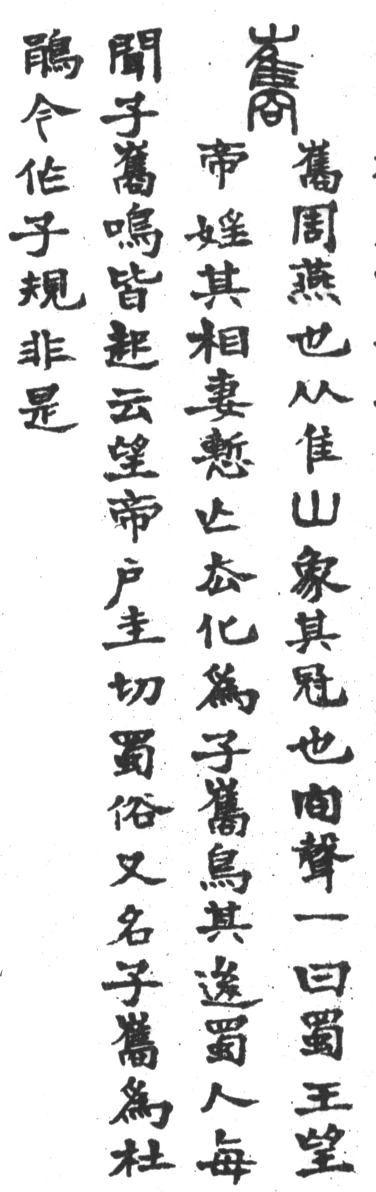 巂
巂周燕也从隹山象其冠也㕯聲一曰蜀王望
帝婬其相妻慙亡去化爲子巂鳥其後蜀人每
聞子巂鳴皆起云望帝戶圭切蜀俗又名子巂爲杜
鵑今作子規非是